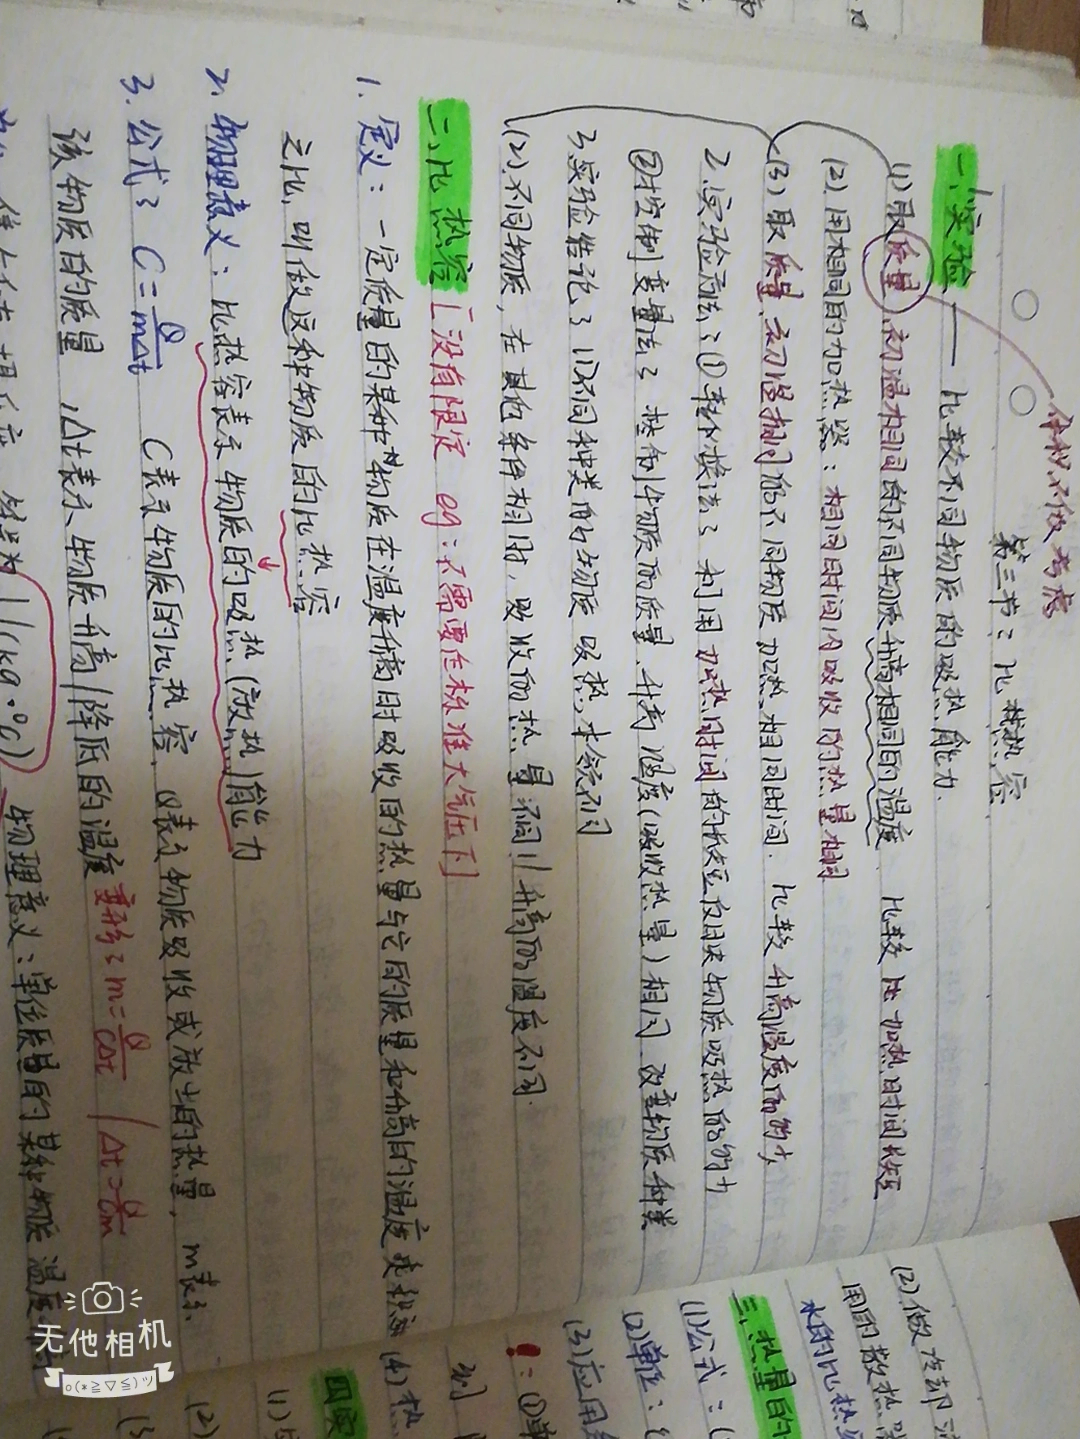 体积不做考虑
第三节：比热容
一、实验——比较不同物质的吸热能力.
(1)取质量、初温相同的不同物质升高相同的温度、比较比加热时间长短
(2).用相同的加热器：相同时间内吸收的热量相同
(3)取质量、初温相同的不同物质加热相同时间.比较升高温度的多少
2.实验方法：①转换法：利用加热时间的长短反映物质吸热的能力
②控制变量法：控制物质的质量、升高温度(吸收热量)相同 改变物质种类
3.实验结论：(1)不同种类的物质吸热本领不同
(2).不同物质,在其他条件相同时,吸收的热量不同//升高的温度不同.
二、比热容[没有限定 eg:不需要在标准大气压下]
1.定义：一定质量的某种物质在温度升高时吸收的热量与它的质量和升高的温度乘积
之比,叫做这种物质的比热容
2.物理意义：比热容表示物质的吸热(放热)能力
3.公式：C=Q/mΔt C表示物质的比热容、Q表示物质吸收或放出的热量,m表示
该物质的质量、Δt表示物质升高/降低的温度 变形：m=Q/CΔt / Δt=Q/Cm
J/(kg·℃) 物理意义：单位质量的某种物质温度
(2).做冷却
水的比热容
三、热量的
(1)公式：
(2)单位：
(3)应用
!：①单
例
(4)热
四、实
(1)
(2)
无他相机